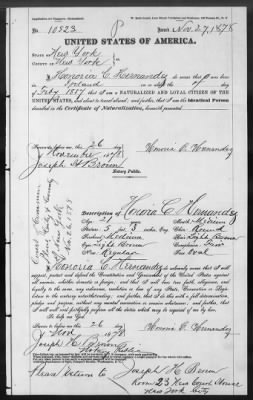 No. 10523
Issued Nov. 27, 1878
UNITED STATES OF AMERICA.
STATE OF New York
COUNTY OF New York
I Honoria C. Hernandez do swear that I was born
in Ireland on the of
of 1857 that I am a NATURALIZED AND LOYAL CITIZEN OF THE
UNITED STATES, and about to travel abroad; and further, that I am the Identical Person
described in the Certificate of Naturalization, herewith presented.
Sworn to before me this 26 day
of November 1878
Honoria C. Hernandez
Joseph H.
Notary Public.
Description of Honoria C. Hernandez
Age: 21
Mouth: Medium
Stature: 5 feet 3 inches
Chin: Round
Forehead: Medium
Hair: Light Brown
Eyes: Light Brown
Complexion: Fair
Nose: Regular
Face: Oval
I, Honoria C. Hernandez do solemnly swear that I will
support, protect and defend the Constitution and Government of the United States against
all enemies, whether domestic or foreign, and that I will bear true faith, allegiance, and
loyalty to the same, any ordinance, resolution or law of any State, Convention or Legislature
to the contrary notwithstanding; and further, that I do this with a full determination,
pledge and purpose, without any mental reservation or evasion whatsoever; and, further, that
I will well and faithfully perform all the duties which may be required of me by law.
So Help me God.
Sworn to before me this 26
day of Nov 1878
Honoria C. Hernandez
Joseph H.
Notary Public
Please Return to Joseph H.
Room 23 New Court House
New York City